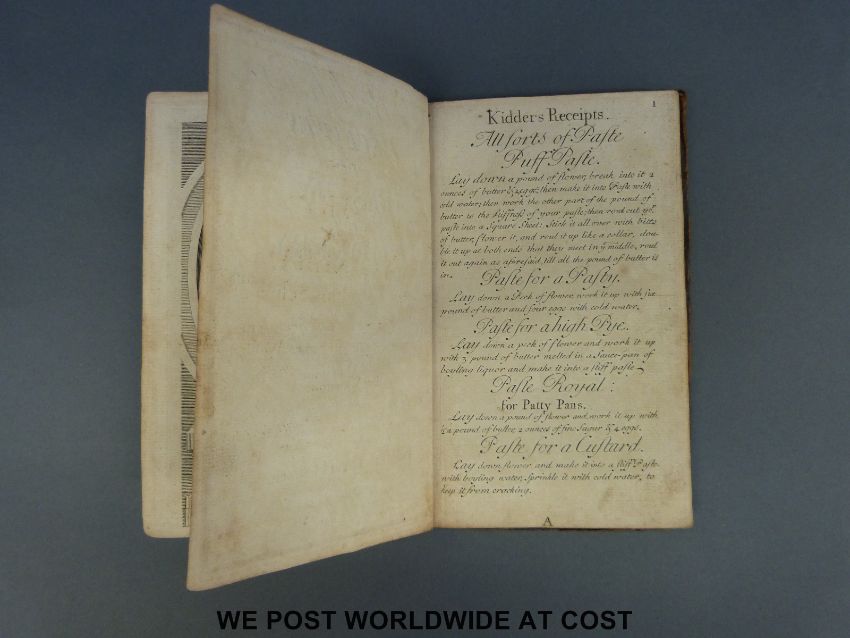 1
Kidder's Receipts.
All sorts of Paste
Puff Paste.
Lay down a pound of flower, break into it 2
ounces of butter & 2 eggs; then make it into Paste with
cold water; then work the other part of the pound of
butter to the stiffness of your paste; then roul out yor.
paste into a Square Sheet: Stick it all over with bitts
of butter, flower it, and roul it up like a collar, dou-
ble it up at both ends that they meet in ye middle, roul
it out again as aforesaid, till all the pound of butter is
in.
Paste for a Pasty.
Lay down a Peck of flower, work it up with six
pound of butter and four eggs with cold water.
Paste for a high Pye.
Lay down a peck of flower and work it up
with 3 pound of butter melted in a Sauce-pan of
boyling liquor and make it into a stiff paste
Paste Royal:
for Patty Pans.
Lay down a pound of flower and work it up with
½ a pound of butter, 2 ounces of fine Sugar & 4 eggs.
Paste for a Custard.
Lay down flower and make it into a stiff Paste
with boyling water, Sprinkle it with cold water, to
keep it from cracking.
A
WE POST WORLDWIDE AT COST